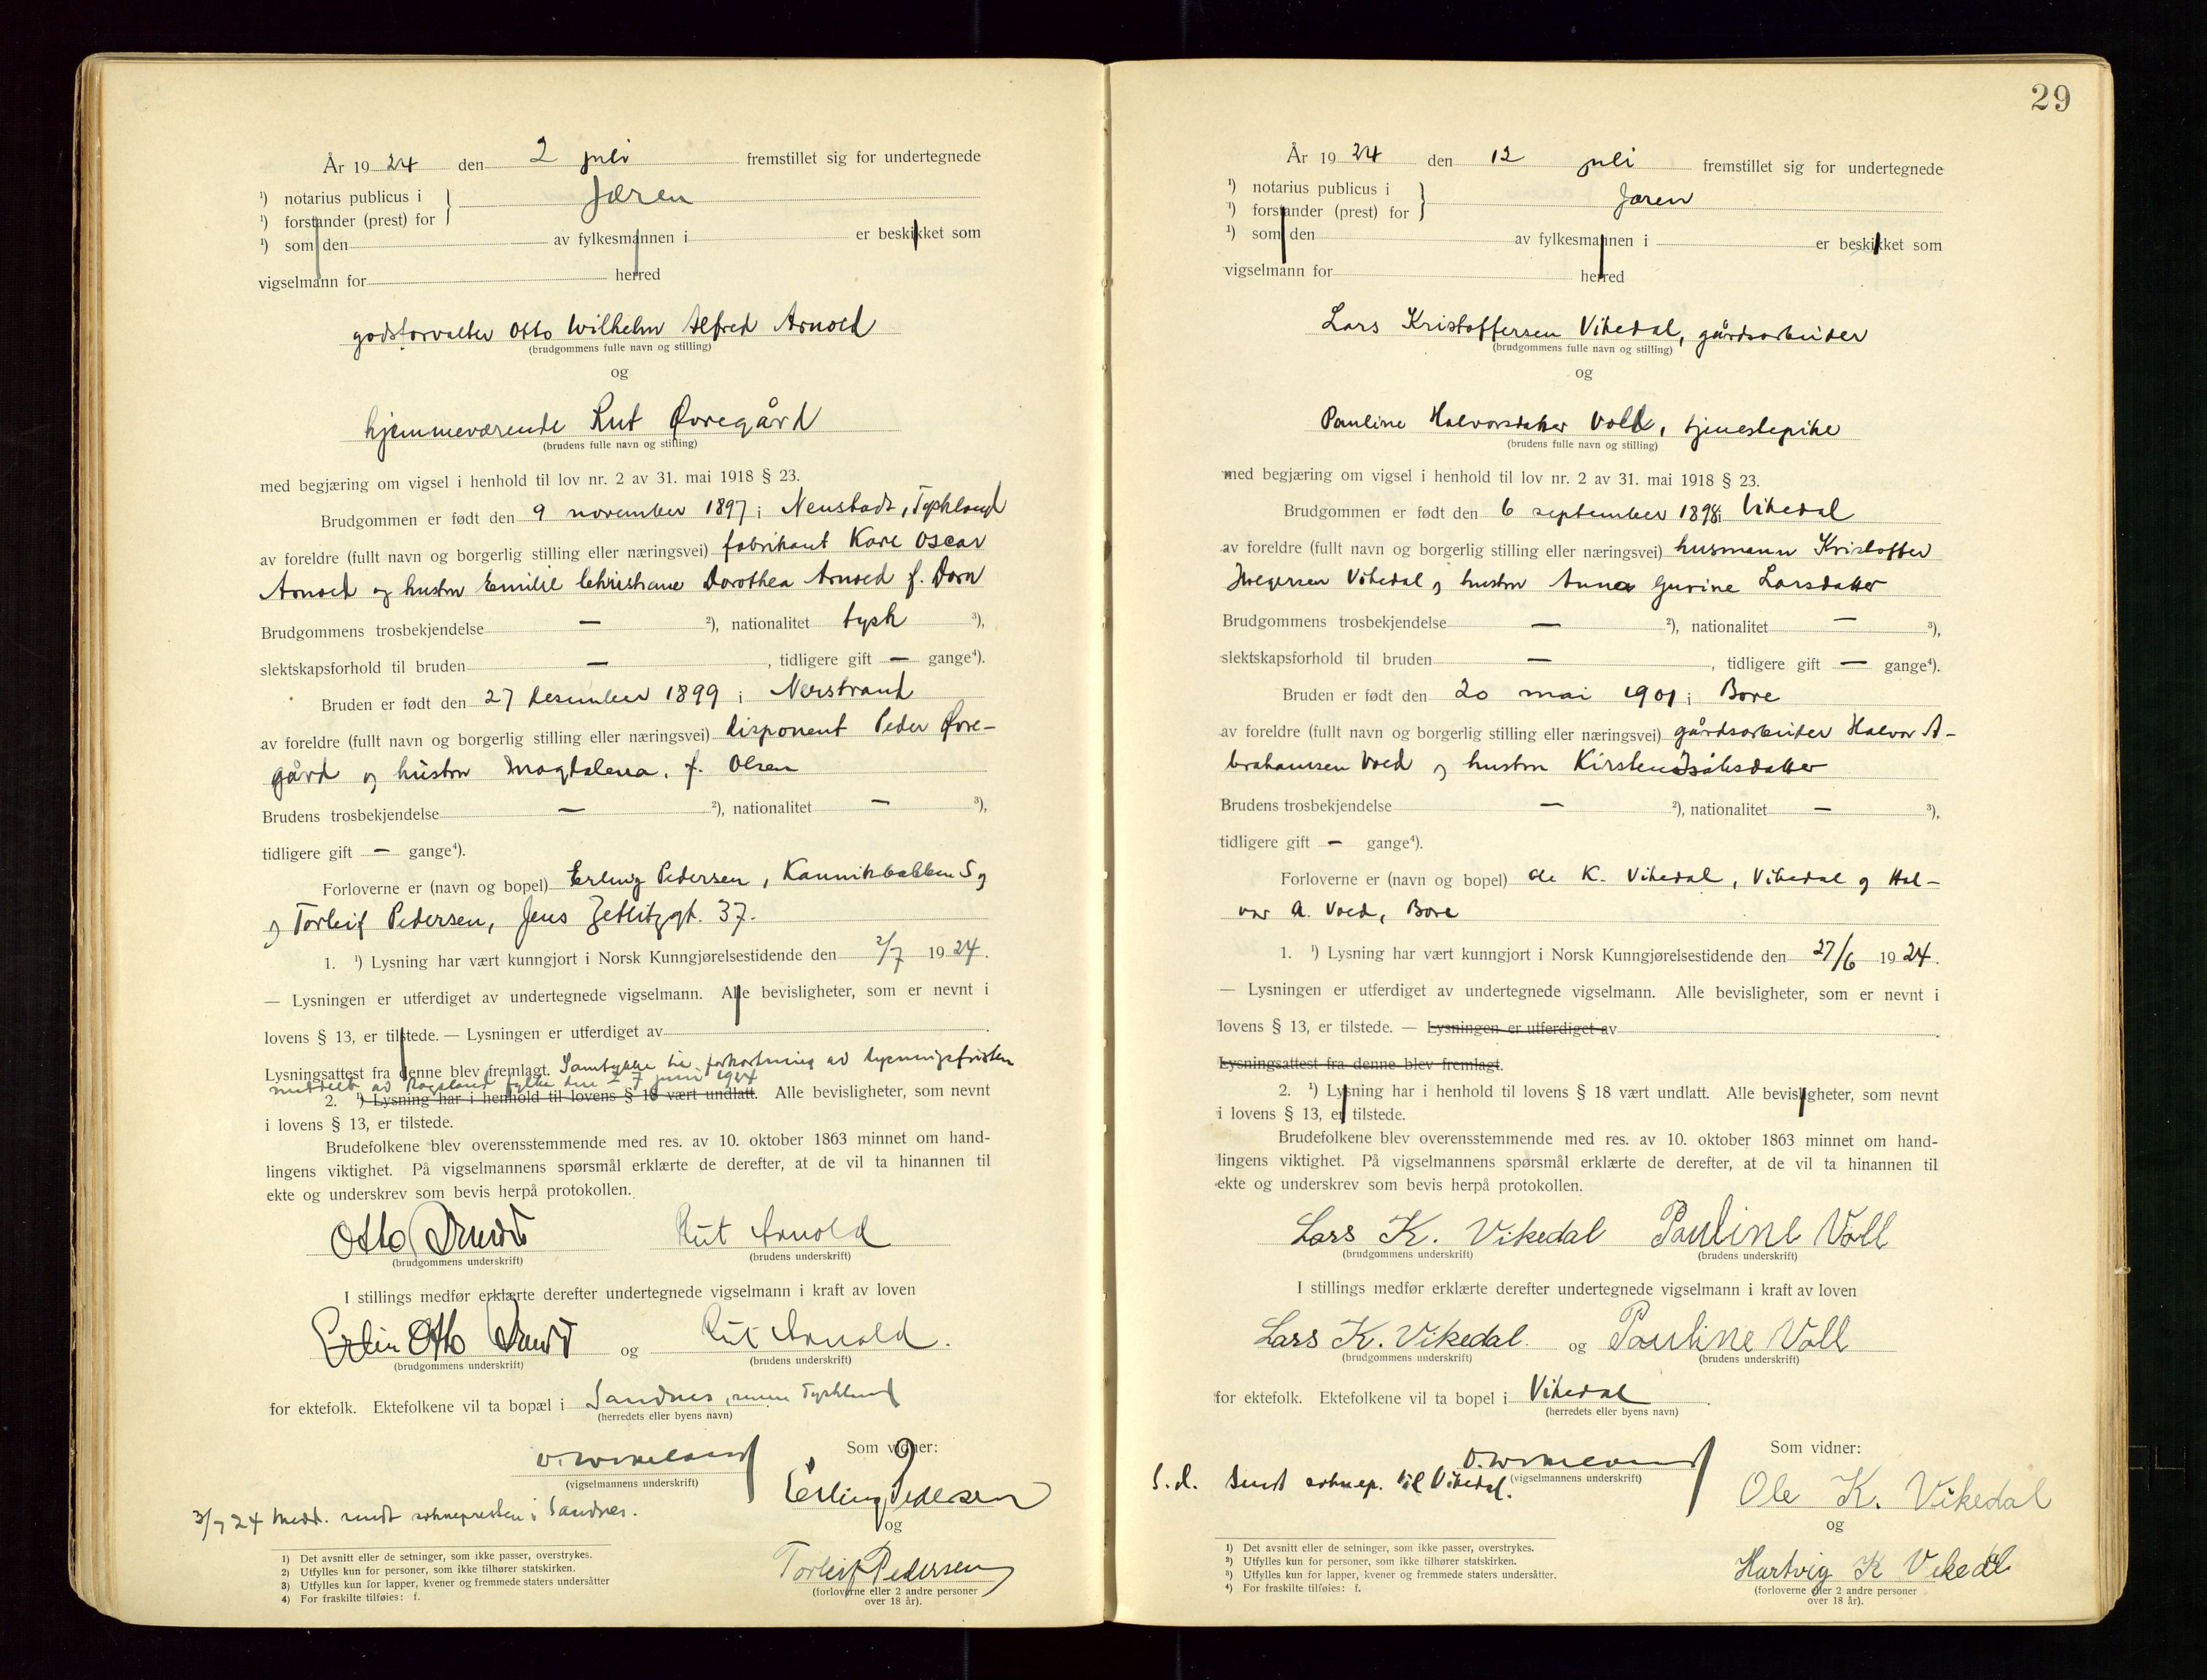 År 19 24 den 2 juli fremstillet sig for undertegnede
¹) notarius publicus i } Jæren
¹) forstander (prest) for
¹) som den av fylkesmannen i er beskikket som
vigselmann for herred
godsforvalter Otto Wilhelm Alfred Arnold
(brudgommens fulle navn og stilling)
og
hjemmeværende Rut Øvregård
(brudens fulle navn og stilling)
med begjæring om vigsel i henhold til lov nr. 2 av 31. mai 1918 § 23.
Brudgommen er født den 9 november 1897 i Neustadt, Tyskland
av foreldre (fullt navn og borgerlig stilling eller næringsvei) fabrikant Karl Oscar
Arnold og hustru Emilie Christiane Dorothea Arnold f. Dorn
Brudgommens trosbekjendelse — ²), nationalitet tysk ³),
slektskapsforhold til bruden —, tidligere gift — gange⁴).
Bruden er født den 27 desember 1899 i Nerstrand
av foreldre (fullt navn og borgerlig stilling eller næringsvei) disponent Peder Øvre-
gård og hustru Magdalena, f. Olsen
Brudens trosbekjendelse — ²), nationalitet — ³),
tidligere gift — gange⁴).
Forloverne er (navn og bopel) Erling Pedersen, Kannikbakken 5 og
og Torleif Pedersen, Jens Zetlitzgt. 37.
1. ¹) Lysning har vært kunngjort i Norsk Kunngjørelsestidende den 2/7 19 24.
— Lysningen er utferdiget av undertegnede vigselmann. Alle bevisligheter, som er nevnt i
lovens § 13, er tilstede. — Lysningen er utferdiget av
Lysningsattest fra denne blev fremlagt. Samtykke til forkortning av lysningsfristen
meddelt av Rogaland fylke den 27 juni 1924
2. ¹) Lysning har i henhold til lovens § 18 vært undlatt. Alle bevisligheter, som nevnt
i lovens § 13, er tilstede.
Brudefolkene blev overensstemmende med res. av 10. oktober 1863 minnet om hand-
lingens viktighet. På vigselmannens spørsmål erklærte de derefter, at de vil ta hinannen til
ekte og underskrev som bevis herpå protokollen.
Otto Arnold Rut Arnold
(brudgommens underskrift) (brudens underskrift)
I stillings medfør erklærte derefter undertegnede vigselmann i kraft av loven
Otto Arnold og Rut Arnold.
(brudgommens underskrift) (brudens underskrift)
for ektefolk. Ektefolkene vil ta bopæl i Sandnes, senere Tyskland
(herredets eller byens navn)
Som vidner:
(vigselmannens underskrift)
Erling Pedersen
3/7 24 Medd. sendt sognepresten i Sandnes.
og
Torleif Pedersen
(forloverne eller 2 andre personer
over 18 år).
1) Det avsnitt eller de setninger, som ikke passer, overstrykes.
2) Utfylles kun for personer, som ikke tilhører statskirken.
3) Utfylles kun for lapper, kvener og fremmede staters undersåtter
4) For fraskilte tilføies: f.
29
År 19 24 den 12 juli fremstillet sig for undertegnede
¹) notarius publicus i } Jæren
¹) forstander (prest) for
¹) som den av fylkesmannen i er beskikket som
vigselmann for herred
Lars Kristoffersen Vikedal, gårdsarbeider
(brudgommens fulle navn og stilling)
og
Pauline Halvorsdatter Voll, tjenestepike
(brudens fulle navn og stilling)
med begjæring om vigsel i henhold til lov nr. 2 av 31. mai 1918 § 23.
Brudgommen er født den 6 september 1898 i Vikedal
av foreldre (fullt navn og borgerlig stilling eller næringsvei) husmann Kristoffer
Vikedal og hustru Anna Gurine Larsdatter
Brudgommens trosbekjendelse — ²), nationalitet — ³),
slektskapsforhold til bruden —, tidligere gift — gange⁴).
Bruden er født den 20 mai 1901 i Bore
av foreldre (fullt navn og borgerlig stilling eller næringsvei) gårdsarbeider Halvor A-
brahamsen Voll og hustru Kirsten Isaksdatter
Brudens trosbekjendelse — ²), nationalitet — ³),
tidligere gift — gange⁴).
Forloverne er (navn og bopel) Ole K. Vikedal, Vikedal og Hal-
vor A. Voll, Bore
1. ¹) Lysning har vært kunngjort i Norsk Kunngjørelsestidende den 27/6 19 24.
— Lysningen er utferdiget av undertegnede vigselmann. Alle bevisligheter, som er nevnt i
lovens § 13, er tilstede. — Lysningen er utferdiget av
Lysningsattest fra denne blev fremlagt.
2. ¹) Lysning har i henhold til lovens § 18 vært undlatt. Alle bevisligheter, som nevnt
i lovens § 13, er tilstede.
Brudefolkene blev overensstemmende med res. av 10. oktober 1863 minnet om hand-
lingens viktighet. På vigselmannens spørsmål erklærte de derefter, at de vil ta hinannen til
ekte og underskrev som bevis herpå protokollen.
Lars K. Vikedal Pauline Voll
(brudgommens underskrift) (brudens underskrift)
I stillings medfør erklærte derefter undertegnede vigselmann i kraft av loven
Lars K. Vikedal. og Pauline Voll
(brudgommens underskrift) (brudens underskrift)
for ektefolk. Ektefolkene vil ta bopel i Vikedal.
(herredets eller byens navn)
Som vidner:
(vigselmannens underskrift)
S.d. sendt sognep. til Vikedal.
Ole K. Vikedal
og
Hartvig K Vikedal
(forloverne eller 2 andre personer
over 18 år).
1) Det avsnitt eller de setninger, som ikke passer, overstrykes.
2) Utfylles kun for personer, som ikke tilhører statskirken.
3) Utfylles kun for lapper, kvener og fremmede staters undersåtter.
4) For fraskilte tilføies: f.